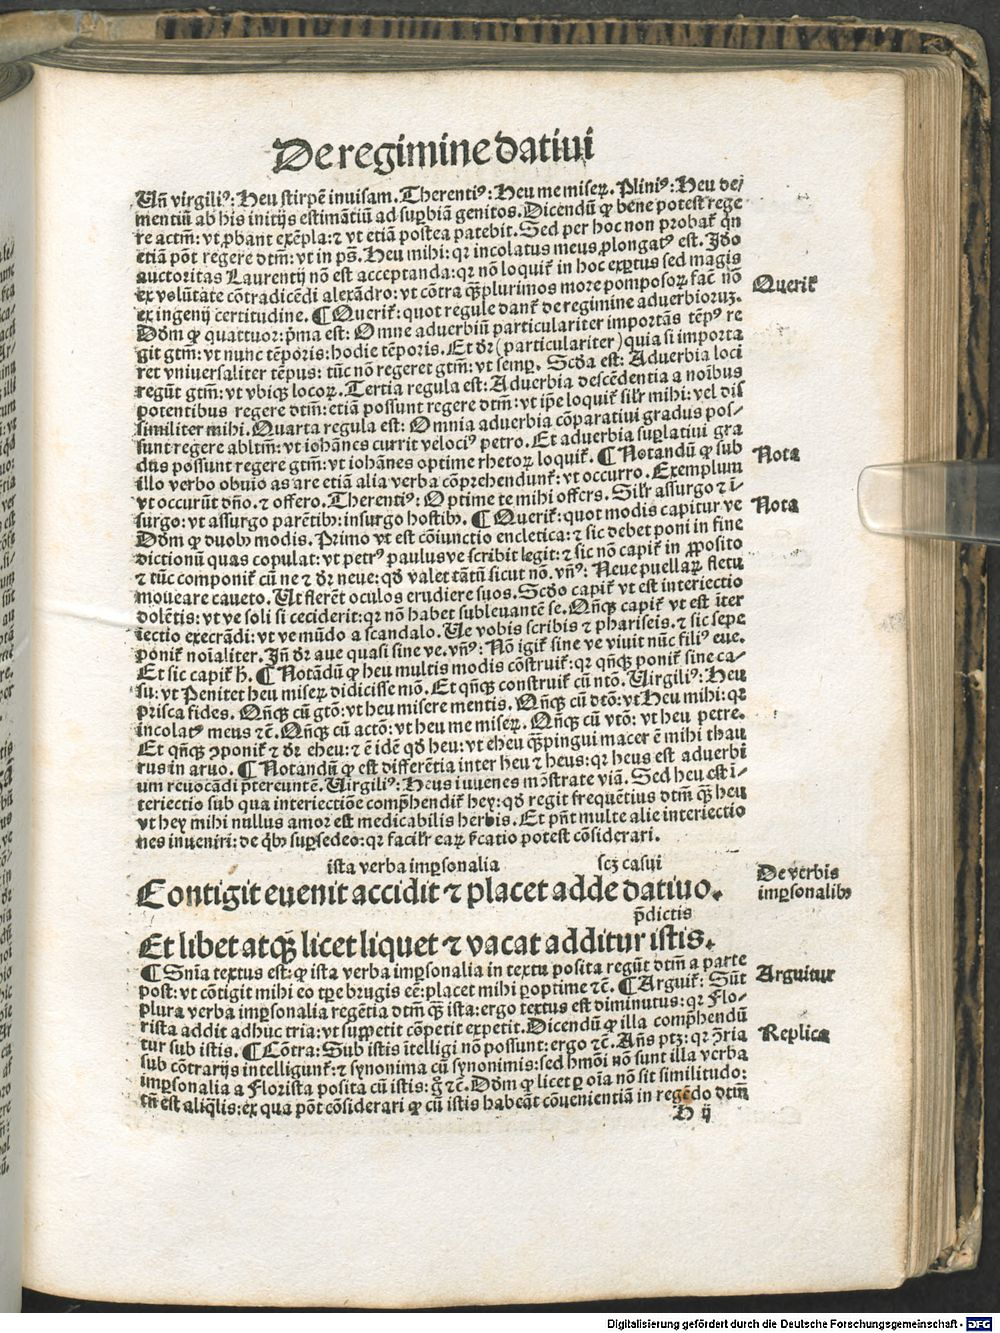 De regimine datiui
Vñ virgili⁹: Heu stirpē inuisam. Therenti⁹: Heu me miseꝝ. Plini⁹: Heu de/
mentiū ab his initijs estimātiū ad suꝑbiā genitos. Dicendū ꝙ bene potest rege
re actm̄: vt ꝓbant exēpla: ⁊ vt etiā postea patebit. Sed per hoc non probat̄ qn̄
etiā pōt regere dtm̄: vt in ps̄. Heu mihi: qꝛ incolatus meus ꝓlongat⁹ est. Ideo
auctoritas Laurentij nō est acceptanda: qꝛ nō loquit̄ in hoc exꝑtus sed magis
ex volūtate cōtradicēdi alexādro: vt cōtra qᷓꝫplurimos more pomposoꝝ fac̄ nō
ex ingenij certitudine. ¶ Querit̄: quot regule dant̄ de regimine aduerbioruꝫ.
Dōm ꝙ quattuor: p̄ma est: Omne aduerbiū particulariter importās tēp⁹ re
git gtm̄: vt nunc tēporis: hodie tēporis. Et dr̄ (particulariter) quia si importa
ret vniuersaliter tēpus: tūc nō regeret gtm̄: vt semꝑ. Scd̄a est: Aduerbia loci
regūt gtm̄: vt vbiqꝫ locoꝝ. Tertia regula est: Aduerbia descēdentia a noībus
potentibus regere dtm̄: etiā possunt regere dtm̄: vt ip̄e loquit̄ silr̄ mihi: vel dis
similiter mihi. Quarta regula est: Omnia aduerbia cōparatiui gradus pos/
sunt regere abltm̄: vt iohānes currit veloci⁹ petro. Et aduerbia suꝑlatiui gra
dus possunt regere gtm̄: vt iohānes optime rhetoꝝ loquit̄. ¶ Notandū ꝙ sub
illo verbo obuio as are etiā alia verba cōprehendunt̄: vt occurro. Exemplum
vt occurūt dn̄o. ⁊ offero. Therenti⁹: Optime te mihi offers. Silr̄ assurgo ⁊ ī-
surgo: vt assurgo parētibꝫ: insurgo hostibꝫ. ¶ Querit̄: quot modis capitur ve
Dōm ꝙ duobꝫ modis. Primo vt est cōiunctio encletica: ⁊ sic debet poni in fine
dictionū quas copulat: vt petr⁹ paulusve scribit legit: ⁊ sic nō capit̄ in ꝓposito
⁊ tūc componit̄ cū ne ⁊ dr̄ neue: qd̄ valet tātū sicut nō. vn̄⁹: Neue puellaꝝ fletu
moueare caueto. Ut flerēt oculos erudiere suos. Scd̄o capit̄ vt est interiectio
dolētis: vt ve soli si ceciderit: qꝛ non habet subleuantē se. Qn̄qꝫ capit̄ vt est īter
iectio execrādi: vt ve mūdo a scandalo. Ue vobis scribis ⁊ phariseis. ⁊ sic sepe
ponit̄ noīaliter. In̄ dr̄ aue quasi sine ve. vn̄⁹: Nō igit̄ sine ve viuit nūc fili⁹ eue.
Et sic capit̄ h̄. ¶ Notādū ꝙ heu multis modis cōstruit̄: qꝛ qn̄qꝫ ponit̄ sine ca-
su: vt Penitet heu miseꝝ didicisse mō. Et qn̄qꝫ construit̄ cū ntō. Uirgili⁹: Heu
prisca fides. Qn̄qꝫ cū gtō: vt heu misere mentis. Qn̄qꝫ cū dtō: vt Heu mihi: qꝛ
incolat⁹ meus ⁊c̄. Qn̄qꝫ cū actō: vt heu me miseꝝ. Qn̄qꝫ cū vtō: vt heu petre.
Et qn̄qꝫ ꝯponit̄ ⁊ dr̄ eheu: ⁊ ē idē qd̄ heu: vt eheu qᷓꝫ pingui macer ē mihi thau
rus in aruo. ¶ Notandū ꝙ est differētia inter heu ⁊ heus: qꝛ heus est aduerbi
um reuocādi p̄tereuntē. Uirgili⁹: Heus iuuenes mōstrate viā. Sed heu est ī-
teriectio sub qua interiectiōe comp̄hendit̄ hey: qd̄ regit frequētius dtm̄ qᷓꝫ heu
vt hey mihi nullus amor est medicabilis herbis. Et pn̄t multe alie interiectio
nes inueniri: de qbꝫ suꝑsedeo: qꝛ facilr̄ eaꝝ ꝟcatio potest cōsiderari.
ista verba imꝑsonalia scꝫ casui
Contigit euenit accidit ⁊ placet adde datiuo.
p̄dictis
Et libet atqꝫ licet liquet ⁊ vacat additur istis.
¶ Sn̄ia textus est: ꝙ ista verba imꝑsonalia in textu posita regūt dtm̄ a parte
post: vt cōtigit mihi eo tp̄e brugis eē: placet mihi ꝑoptime ⁊c̄. ¶ Arguit̄: Sūt
plura verba imꝑsonalia regētia dtm̄ qᷓꝫ ista: ergo textus est diminutus: qꝛ Flo-
rista addit adhuc tria: vt supꝑetit cōpetit expetit. Dicendū ꝙ illa comp̄hendū
tur sub istis. ¶ Cōtra: Sub istis ītelligi nō possunt: ergo ⁊c̄. Añs ptꝫ: qꝛ ꝯ̄ria
sub cōtrarijs intelligunt̄: ⁊ synonima cū synonimis: sed hm̄oi nō sunt illa verba
imꝑsonalia a Florista posita cū istis: g̊ ⁊c̄. Dōm ꝙ licet ꝑ oīa nō sit similitudo:
tn̄ est aliq̄lis: ex qua pōt cōsiderari ꝙ cū istis habeāt cōuenientiā in regēdo dtm̄
H ij
Querit̄
Nota
Nota
De verbis
imꝑsonalibꝫ
Arguitur
Replica
Digitalisierung gefördert durch die Deutsche Forschungsgemeinschaft - DFG